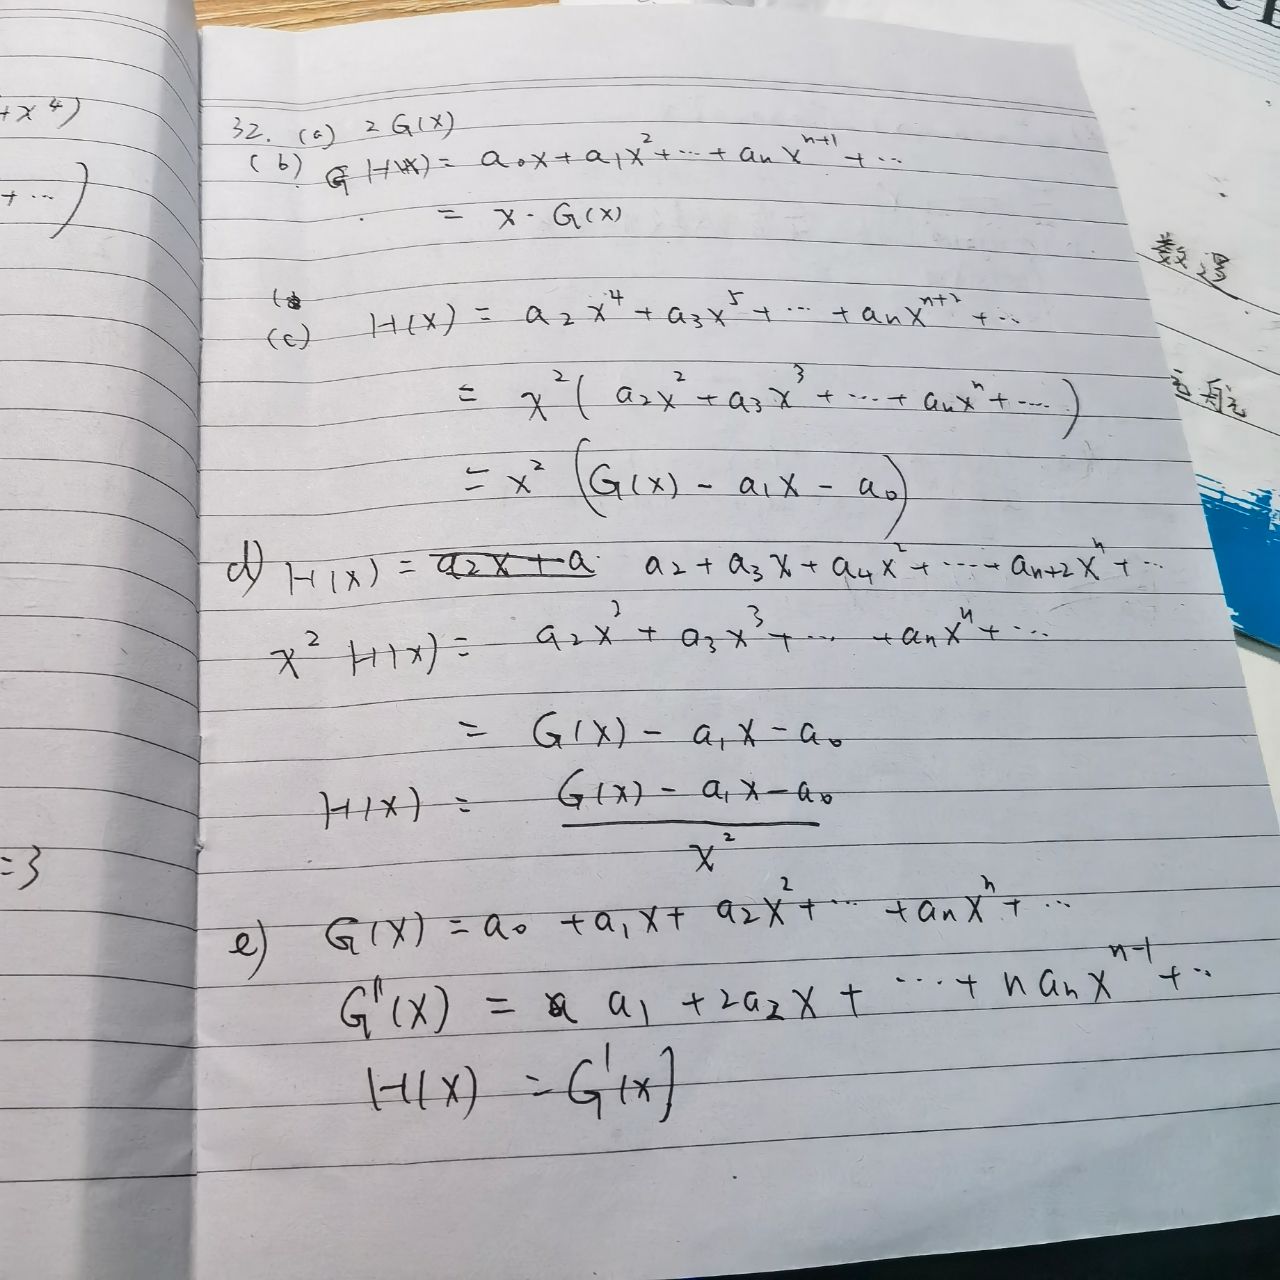 +x⁴)
+ ...)
=3
32. (a) 2 G(x)
(b) H(x) = a₀x + a₁x² + ... + aₙxⁿ⁺¹ + ...
= x · G(x)
(c) H(x) = a₂x⁴ + a₃x⁵ + ... + aₙxⁿ⁺² + ...
= x² ( a₂x² + a₃x³ + ... + aₙxⁿ + ... )
= x² (G(x) - a₁x - a₀)
d) H(x) = a₂x + a a₂ + a₃x + a₄x² + ... + aₙ₊₂xⁿ + ...
x² H(x) = a₂x² + a₃x³ + ... + aₙxⁿ + ...
= G(x) - a₁x - a₀
H(x) = G(x) - a₁x - a₀
x²
e) G(x) = a₀ + a₁x + a₂x² + ... + aₙxⁿ + ...
G'(x) = a₁ + 2a₂x + ... + n aₙxⁿ⁻¹ + ...
H(x) = G'(x)
数
航